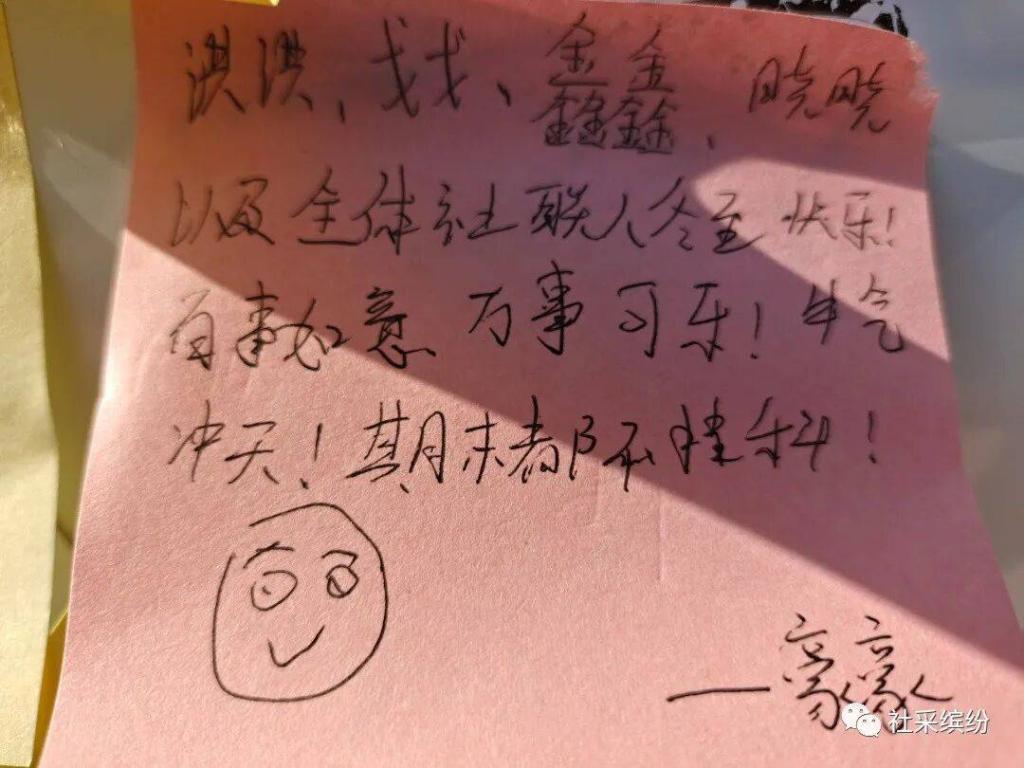 洪洪、戈戈、鑫鑫、晓晓
以及全体社联人冬至快乐！
百事如意 万事可乐！牛气
冲天！期末都不挂科！
—豪豪
社采缤纷